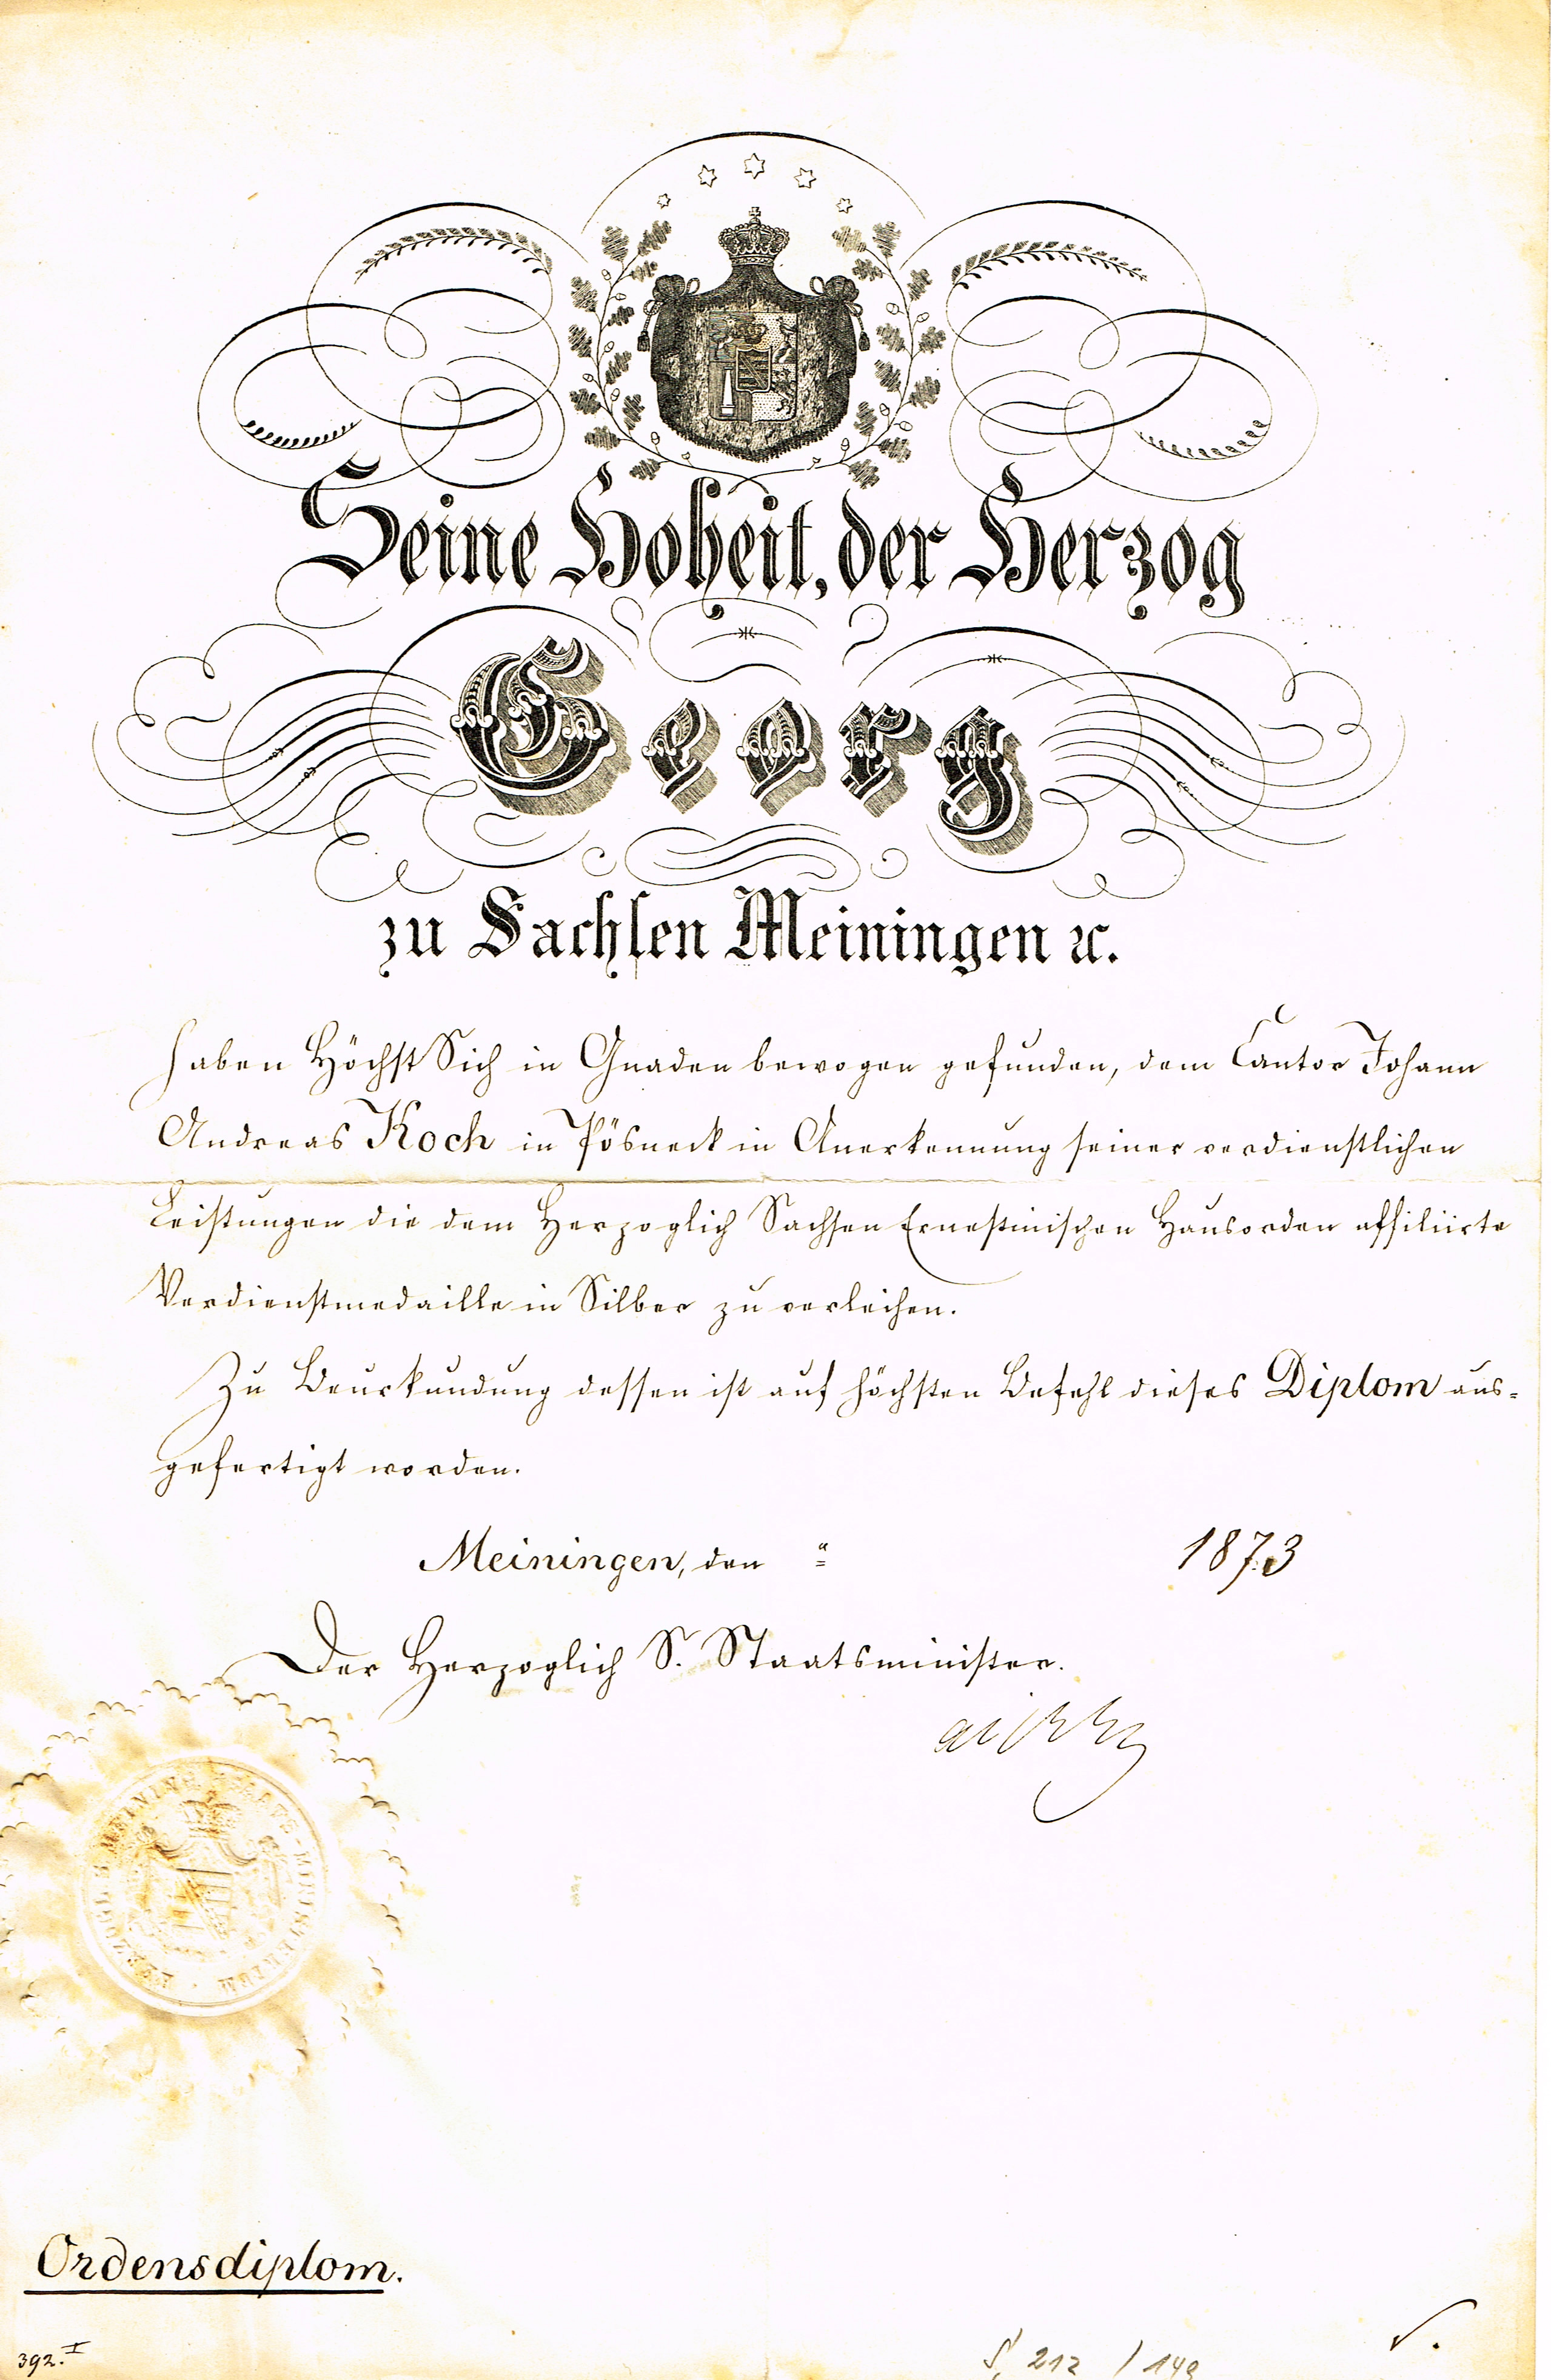 Seine Hoheit, der Herzog
Georg
zu Sachsen Meiningen ꝛc.
haben Höchst Sich in Gnaden bewogen gefunden, dem Cantor Johann
Andreas Koch in Pösneck in Anerkennung seiner verdienstlichen
Leistungen die dem Herzoglich Sachsen Ernestinischen Hausorden affiliirte
Verdienstmedaille in Silber zu verleihen.
Zu Beurkundung dessen ist auf höchsten Befehl dieses Diplom aus-
gefertigt worden.
Meiningen, den " 1873
Der Herzoglich S. Staatsminister.
HERZOGL. S. MEINING. STAATS-MINISTERIUM
Ordensdiplom.
392.I
212 / 149